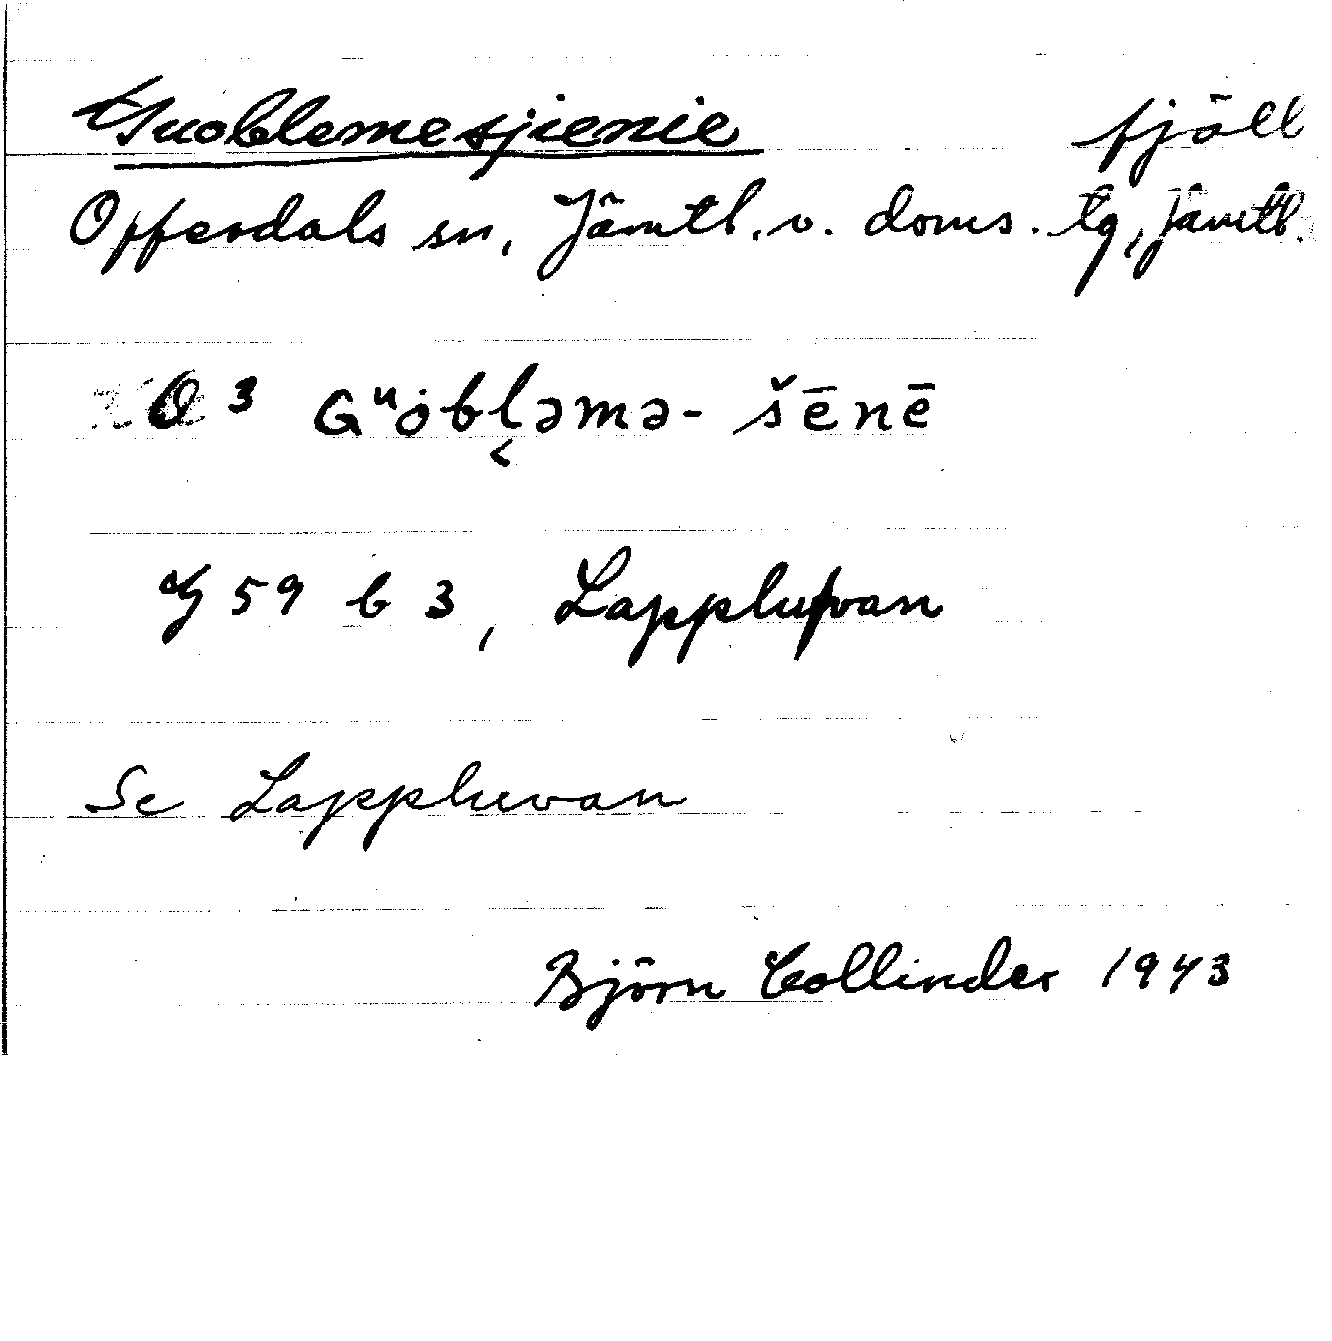 Guoblemesjienie fjäll
Offerdals sn, Jämtl. v. doms. tg, Jämtl.
O 3 Gᵘȯbl̬əmə- šēnē
G 59 b 3, Lappluvan
Se Lappluvan
Björn Collinder 1943